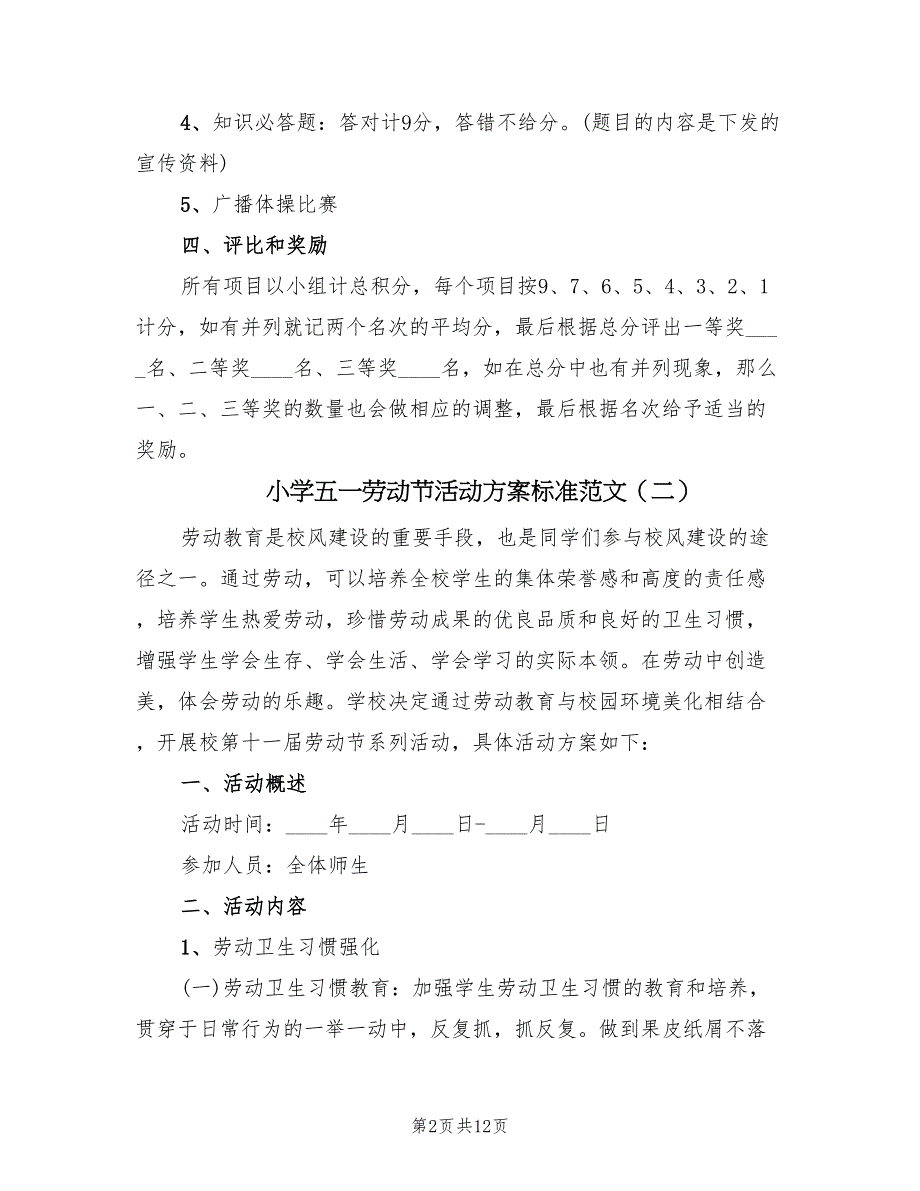 4、知识必答题：答对计9分，答错不给分。(题目的内容是下发的
宣传资料)
5、广播体操比赛
四、评比和奖励
所有项目以小组计总积分，每个项目按9、7、6、5、4、3、2、1
计分，如有并列就记两个名次的平均分，最后根据总分评出一等奖___
_名、二等奖____名、三等奖____名，如在总分中也有并列现象，那么
一、二、三等奖的数量也会做相应的调整，最后根据名次给予适当的
奖励。
小学五一劳动节活动方案标准范文（二）
劳动教育是校风建设的重要手段，也是同学们参与校风建设的途
径之一。通过劳动，可以培养全校学生的集体荣誉感和高度的责任感
，培养学生热爱劳动，珍惜劳动成果的优良品质和良好的卫生习惯，
增强学生学会生存、学会生活、学会学习的实际本领。在劳动中创造
美，体会劳动的乐趣。学校决定通过劳动教育与校园环境美化相结合
，开展校第十一届劳动节系列活动，具体活动方案如下：
一、活动概述
活动时间：____年____月____日-____月____日
参加人员：全体师生
二、活动内容
1、劳动卫生习惯强化
(一)劳动卫生习惯教育：加强学生劳动卫生习惯的教育和培养，
贯穿于日常行为的一举一动中，反复抓，抓反复。做到果皮纸屑不落
第2页共12页